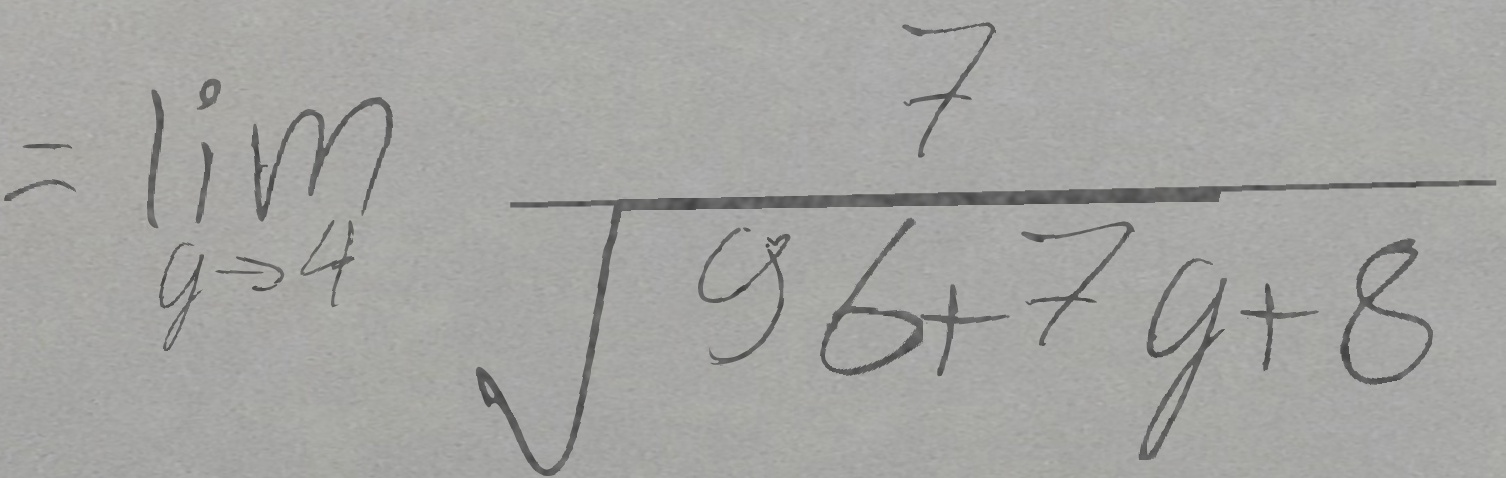 $= \lim_{g \to 4} \frac{7}{\sqrt{96+7g}+8}$